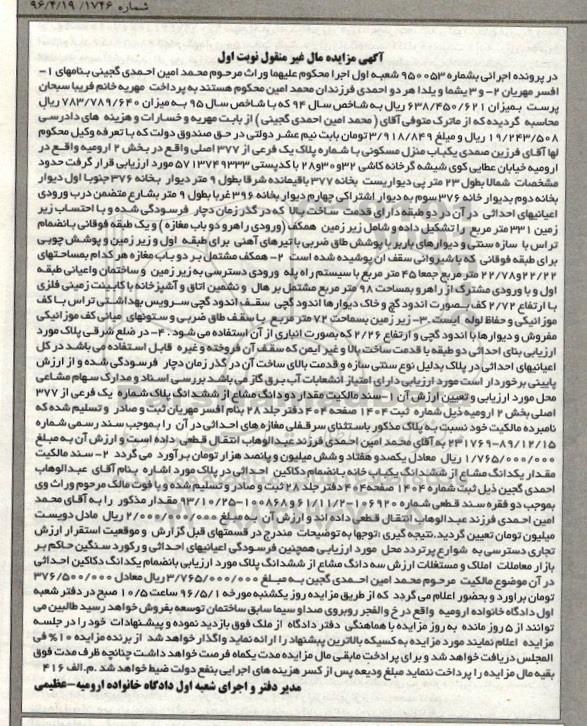 شماره ۱۷۴۶/ ۹۶/۴/۱۹
آگهی مزایده مال غیر منقول نوبت اول
در پرونده اجرائی بشماره ۹۵۰۰۵۳ شعبه اول اجرا محکوم علیهما وراث مرحوم محمد امین احمدی گجینی بنامهای ۱-
افسر مهریان ۲- و ۳ یشما و یلدا هر دو احمدی فرزندان محمد امین محکوم هستند به پرداخت مهریه خانم فریبا سبحان
پرست بمیزان ۶۳۸/۴۵۰/۶۲۱ ریال به شاخص سال ۹۴ که با شاخص سال ۹۵ به میزان ۷۸۳/۷۸۹/۶۴۰ ریال
محاسبه گردیده که از ماترک متوفی آقای (محمد امین احمدی گجینی) از بابت مهریه و خسارات و هزینه های دادرسی
۱۹/۲۴۳/۵۰۸ ریال و مبلغ ۳/۹۱۸/۸۴۹ تومان بابت نیم عشر دولتی در حق صندوق دولت که با تعرفه وکیل محکوم
لها آقای فرزین صمدی یکباب منزل مسکونی با شماره پلاک یک فرعی از ۳۷۷ اصلی واقع در بخش ۲ ارومیه واقع در
ارومیه خیابان عطایی کوی شیشه گرخانه کاشی ۳۲و۳۰و۲۸ با کدپستی ۵۷۱۳۷۴۹۳۳۳ مورد ارزیابی قرار گرفت حدود
مشخصات شمالا بطول ۲۳ متر پی دیواریست بخانه ۳۷۷ باقیمانده شرقا بطول ۹ متر دیوار بخانه ۳۷۶ جنوبا اول دیوار
بخانه دوم بدیوار خانه ۳۷۶ سوم به دیوار اشتراکی چهارم دیوار بخانه ۳۹۶ غربا بطول ۹ متر بشارع متضمن درب ورودی
اعیانیهای احداثی در آن در دو طبقه دارای قدمت ساخت بالا که در گذر زمان دچار فرسودگی شده و با احتساب زیر
زمین ۳۳۱ متر مربع را تشکیل داده و شامل زیر زمین همکف (ورودی راهرو دو باب مغازه) و یک طبقه فوقانی بانضمام
تراس با سازه سنتی و دیوارهای باربر با پوشش طاق ضربی با تیرهای آهنی برای طبقه اول و زیر زمین و پوشش چوبی
برای طبقه فوقانی که با شیروانی سقف آن پوشیده شده است ۲- همکف مشتمل بر دو باب مغازه هر کدام بمساحتهای
۲۲/۲۲ و ۲۲/۷۸ متر مربع جمعا ۴۵ متر مربع با سیستم راه پله ورودی دسترسی به زیر زمین و ساختمان واعیانی طبقه
اول و با ورودی مشترک از راهرو بمساحت ۹۸ متر مربع مشتمل بر هال و نشیمن اتاق و آشپزخانه با کابینت زمینی فلزی
با ارتفاع ۲/۷۲ کف بصورت اندود گچ و خاک دیوارها اندود گچی سقف اندود گچی سرویس بهداشتی تراس با کف
موزائیکی و حفاظ لوله ایست .۳- زیر زمین بمساحت ۷۲ متر مربع با سقف طاق ضربی و ستونهای میانی کف موزائیکی
مفروش و دیوارها با اندود گچی و ارتفاع ۲/۲۶ که بصورت انباری از آن استفاده می شود . ۴- در ضلع شرقی پلاک مورد
ارزیابی بنای احداثی دو طبقه با قدمت ساخت بالا و غیر ایمن که سقف آن فروخته و غیره قابل استفاده می باشد در کل
اعیانیهای احداثی در پلاک بدلیل نوع سنتی سازه و قدمت بالای ساخت آن در گذر زمان دچار فرسودگی شده و از ارزش
پایینی برخوردار است مورد ارزیابی دارای امتیاز انشعابات آب برق گاز می باشد بررسی اسناد و مدارک سهام مشاعی
محل مورد ارزیابی و تعیین ارزش آن ۱- سند مالکیت مقدار دو دانگ مشاع از ششدانگ پلاک شماره یک فرعی از ۳۷۷
اصلی بخش ۲ ارومیه ذیل شماره ثبت ۱۴۰۴ صفحه ۴۰۴ دفتر جلد ۲۸ بنام افسر مهریان ثبت و صادر و تسلیم شده که
نامبرده مالکیت خود نسبت به پلاک مذکور باستثنای سرقفلی مغازه های احداثی در آن را بموجب سند رسمی شماره
۲۳۱۷۶۹-۸۹/۱۲/۱۵ به آقای محمد امین احمدی فرزند عبدالوهاب انتقال قطعی داده است و ارزش آن به مبلغ
۱/۷۶۵/۰۰۰/۰۰۰ ریال معادل یکصدو هفتاد و شش میلیون و پانصد هزار تومان برآورد می گردد ۲- سند مالکیت
مقدار یکدانگ مشاع از ششدانگ یکباب خانه بانضمام دکاکین احداثی در پلاک مورد اشاره بنام آقای عبدالوهاب
احمدی گجین ذیل ثبت شماره ۱۴۰۴ صفحه ۴۰۴ دفتر جلد ۲۸ ثبت و صادر و تسلیم شده و با فوت مالک مرحوم وراث وی
بموجب دو فقره سند قطعی شماره ۱۰۶۹۲۰-۹۶/۱/۲۴ و ۱۱۰۸۶۸-۹۳/۱۰/۲۵ مقدار مذکور را به آقای محمد
امین احمدی فرزند عبدالوهاب انتقال قطعی داده اند و ارزش آن به مبلغ ۲/۰۰۰/۰۰۰/۰۰۰ ریال مادل دویست
میلیون تومان تعیین گردید. نتیجه گیری :توجها به توضیحات مندرج در قسمتهای قبل گزارش و موقعیت استقرار ارزش
تجاری دسترسی به شوارع پرتردد محل مورد ارزیابی همچنین فرسودگی اعیانیهای احداثی و رکورد سنگین حاکم بر
بازار معاملات املاک و مستغلات ارزش سه دانگ مشاع از ششدانگ پلاک مورد ارزیابی بانضمام یکدانگ دکاکین احداثی
در آن موضوع مالکیت مرحوم محمد امین احمدی گجین به مبلغ ۳/۷۶۵/۰۰۰/۰۰۰ ریال معادل ۳۷۶/۵۰۰/۰۰۰
تومان براورد و بحضور اعلام می گردد که از طریق مزایده روز یکشنبه مورخه ۹۶/۵/۱ ساعت ۱۰/۵ صبح در دفتر شعبه
اول دادگاه خانواده ارومیه واقع در خ والفجر روبروی صدا و سیما سابق ساختمان توسعه بفروش خواهد رسید طالبین می
توانند از ۵ روز مانده به روز مزایده با هماهنگی دفتر دادگاه از ملک فوق بازدید نموده و پیشنهادات خود را در جلسه
مزایده اعلام نمایند مورد مزایده به کسیکه بالاترین پیشنهاد را ارائه نماید واگذار خواهد شد از برنده مزایده ۱۰% فی
المجلس دریافت خواهد شد و برای پرداخت مابقی مال مزایده مدت یکماه فرصت خواهد داشت چنانچه ظرف مدت فوق
بقیه مال مزایده را پرداخت ننماید مبلغ ودیعه پس از کسر هزینه های اجرایی بنفع دولت ضبط خواهد شد .م.الف ۴۱۶
مدیر دفتر و اجرای شعبه اول دادگاه خانواده ارومیه-عظیمی